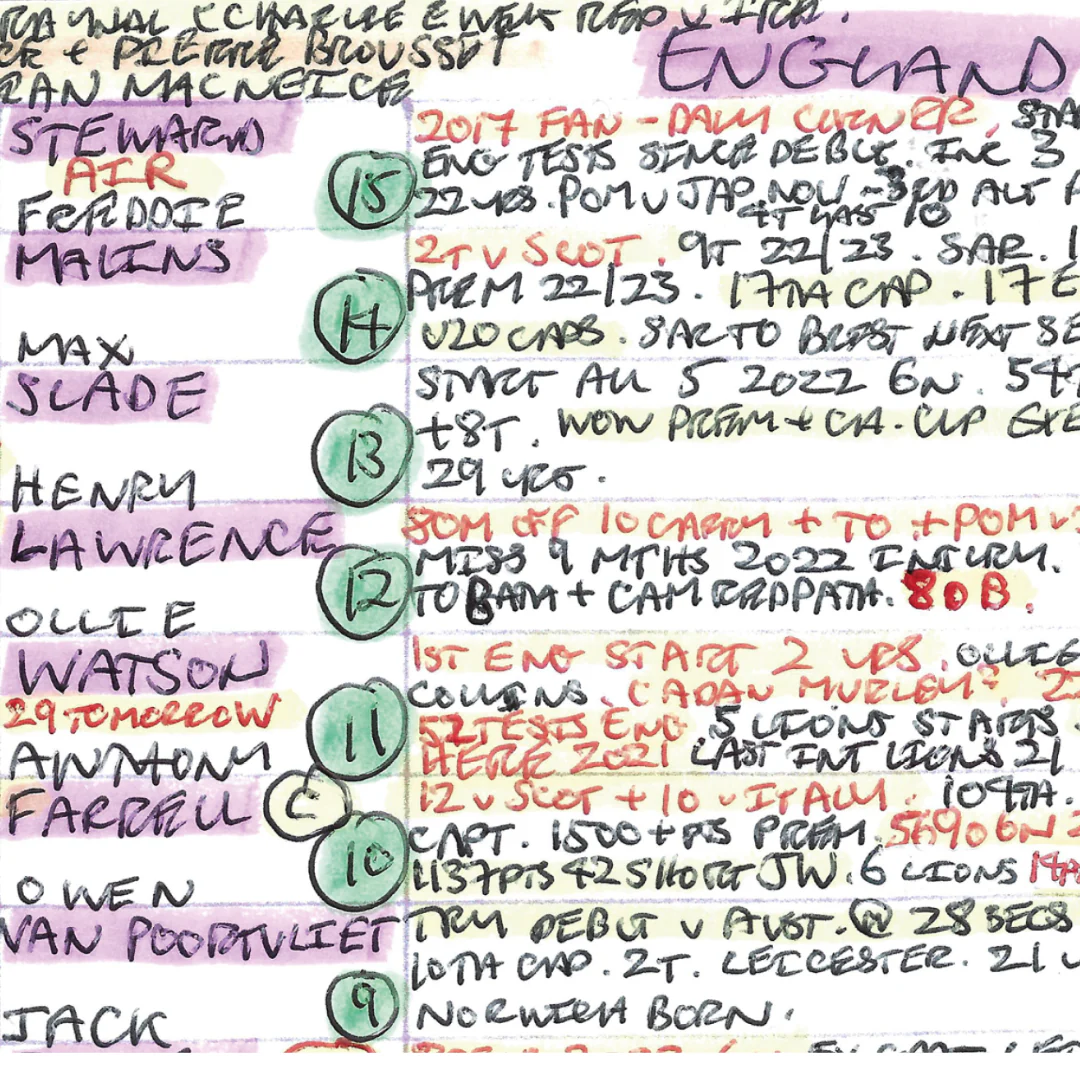 CHARLIE EWELS RED V ITA.
+ PIERRE BROUSSET
RAN MACNEICE
ENGLAND
STEWARD
AIR
FREDDIE
15
2017 FAN - DALY CORNER. STA
ENG TESTS SINCE DEBUT. INC 3
22 YRS. POM V JAP NOV - 3RD ALT
4T LAST 10
MALINS
MAX
14
2T V SCOT. 9T 22/23. SAR. 1
PREM 22/23. 17TH CAP. 17 E
U20 CAPS. SAR TO BRIST NEXT SE
SLADE
HENRY
13
START ALL 5 2022 6N. 54T
+8T. WON PREM + CH. CUP EXE
29 YRS.
LAWRENCE
OLLIE
12
80M OFF 10 CARRY + TO + POM V
MISS 9 MTHS 2022 INJURY.
TO BAM + CAM REDPATH. 8 D B.
WATSON
29 TOMORROW
ANTHONY
11
1ST ENG START 2 YRS. OLLIE
COLLINS. CADAN MURLEY? 2
52 TESTS ENG. 5 LIONS STARTS.
HERE 2021 LAST INT LIONS 21
FARRELL
C
OWEN
10
12 V SCOT + 10 V ITALY. 104TH.
CAPT. 1500+ PTS PREM. 569 6N
1137PTS 42 SHORT JW. 6 LIONS 14
VAN POORTVLIET
JACK
9
TRY DEBUT V AUST. @ 28 SECS
10TH CAP. 2T. LEICESTER. 21 Y
NORWICH BORN.